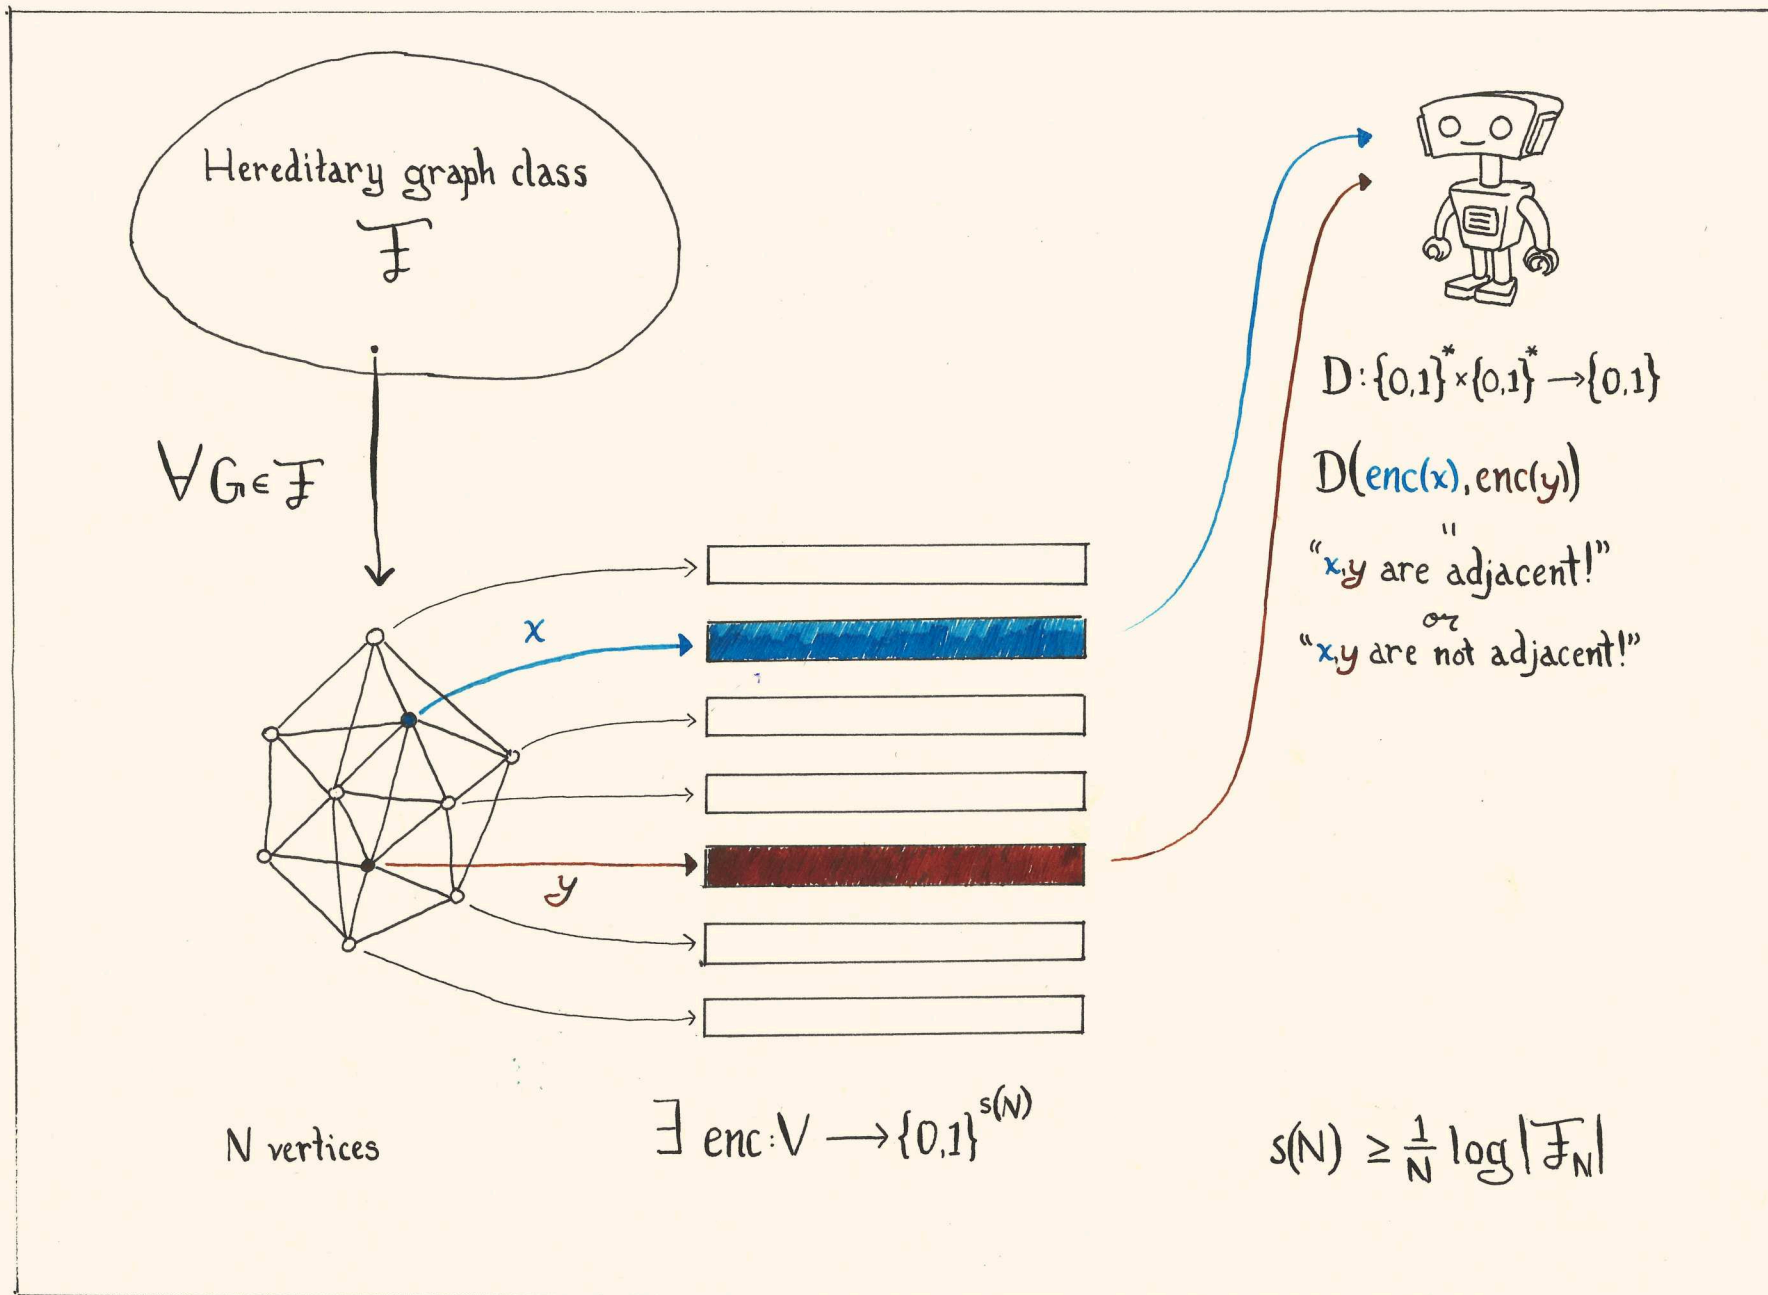 Hereditary graph class
Ƒ
∀ G ∈ Ƒ
x
y
N vertices
∃ enc: V → {0,1}^s(N)
D: {0,1}* × {0,1}* → {0,1}
D(enc(x), enc(y))
"
"x,y are adjacent!"
or
"x,y are not adjacent!"
s(N) ≥ 1/N log |Ƒ_N|